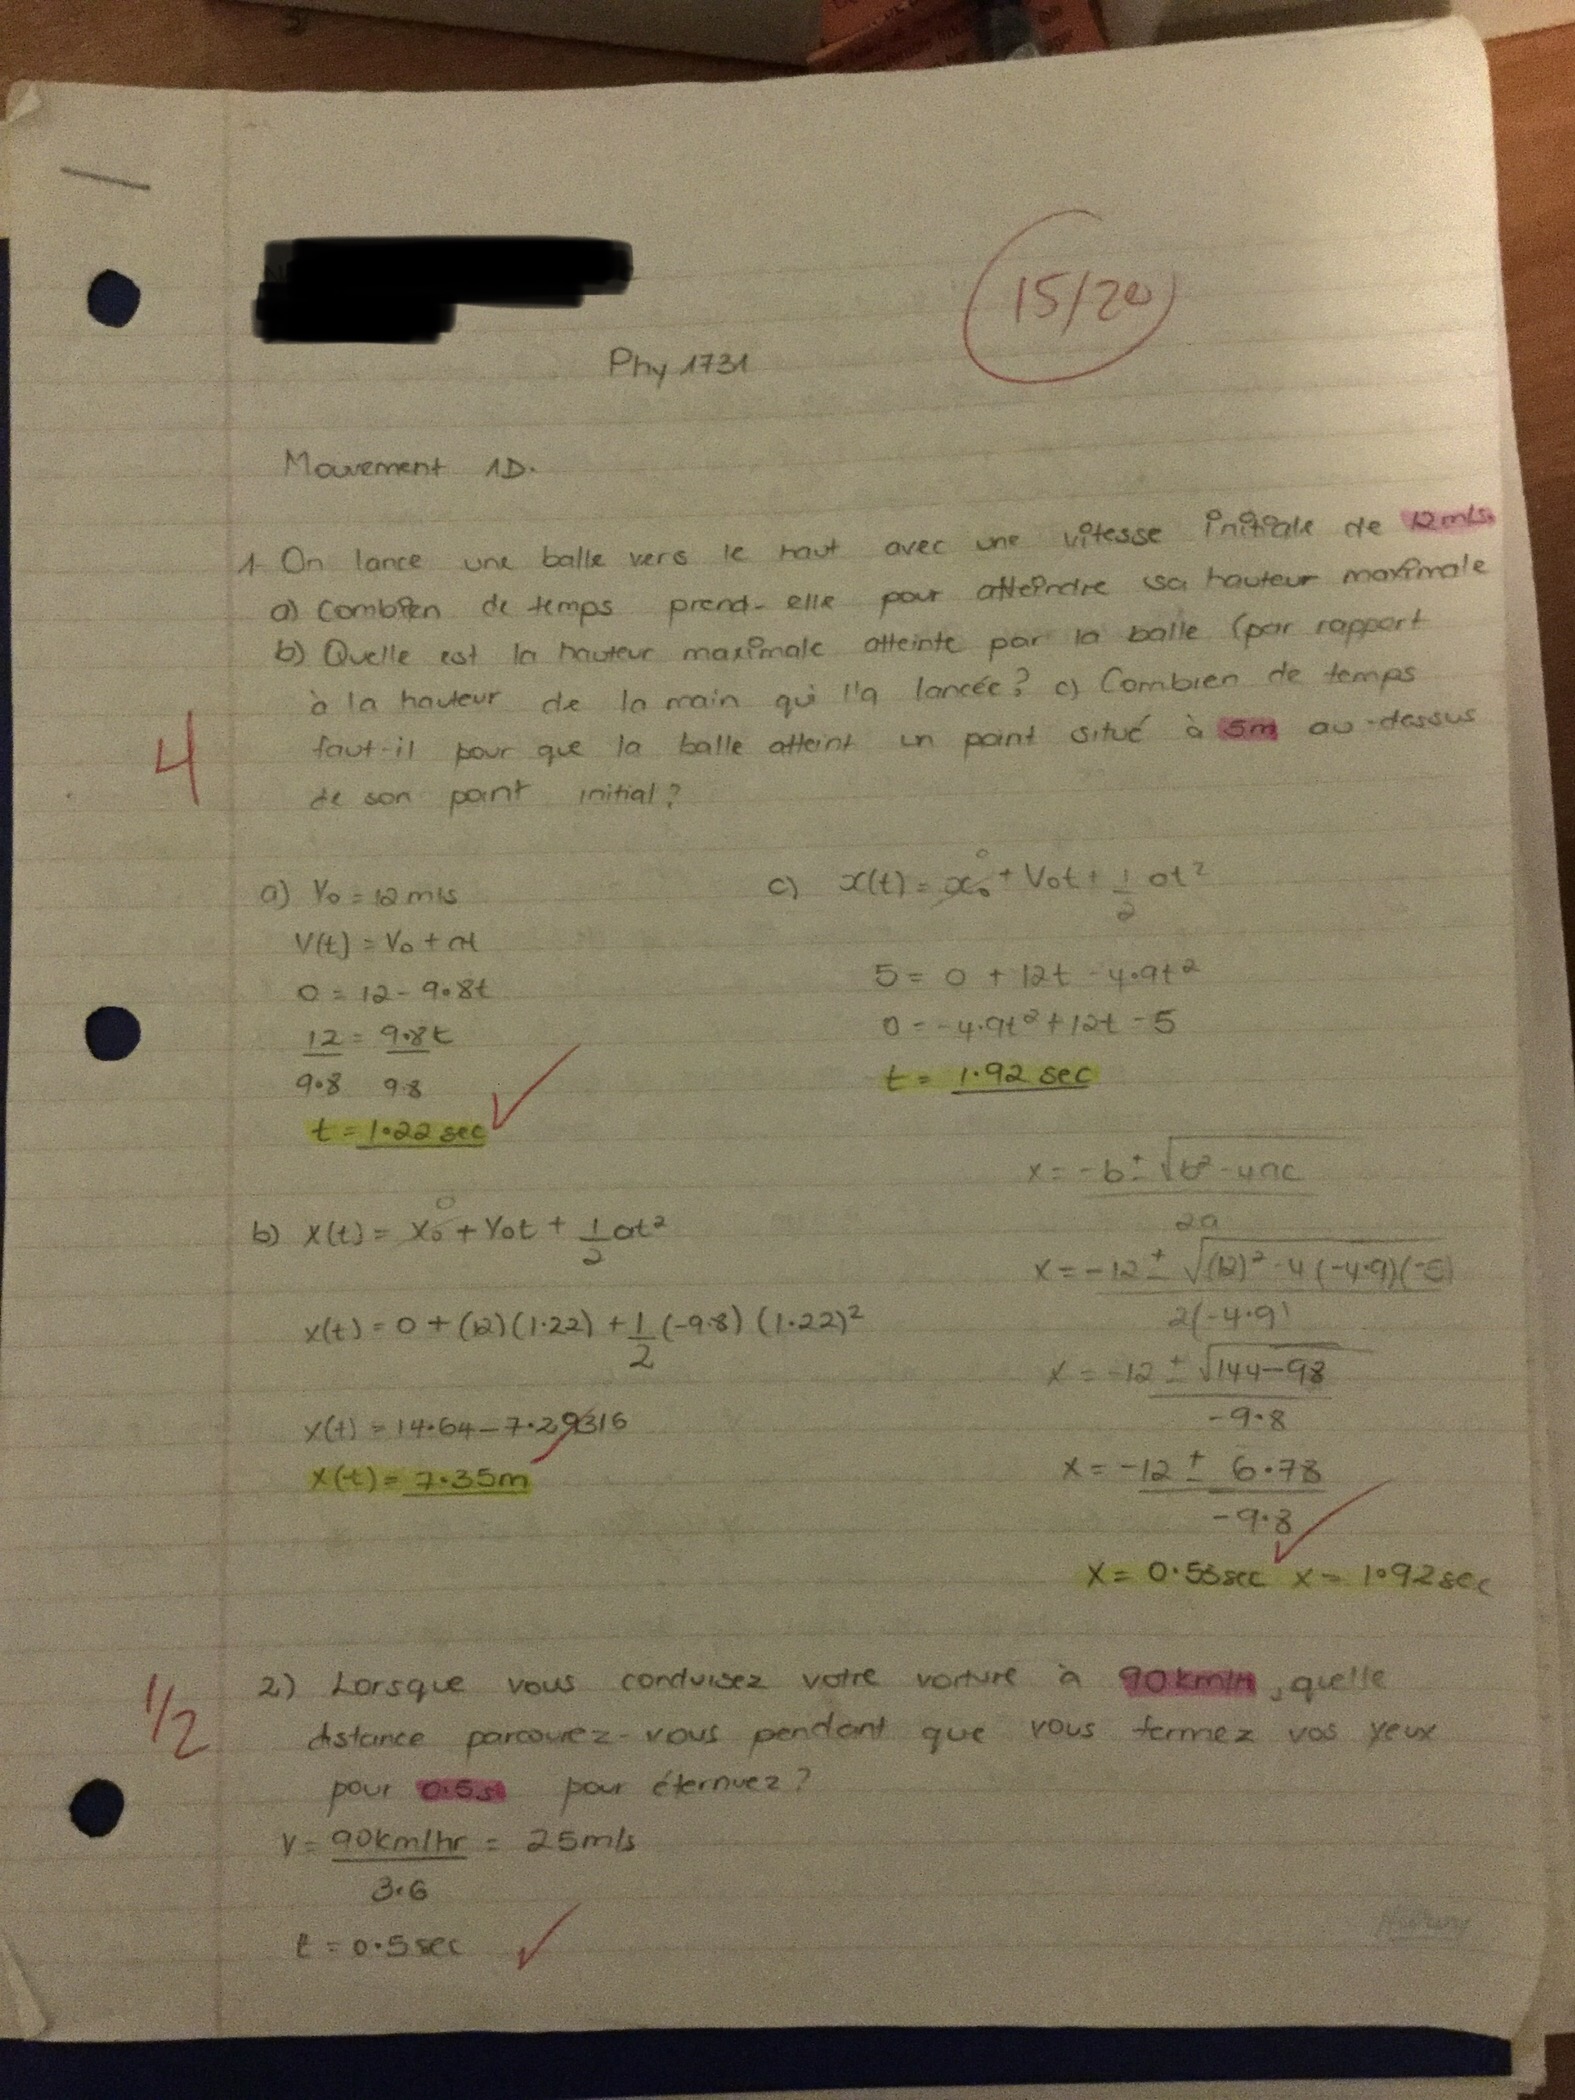 15/20
Phy 1731
Mouvement 1D.
1 On lance une balle vers le haut avec une vitesse initiale de 12m/s.
a) Combien de temps prend-elle pour atteindre sa hauteur maximale
b) Quelle est la hauteur maximale atteinte par la balle (par rapport
à la hauteur de la main qui l'a lancée? c) Combien de temps
faut-il pour que la balle atteint un point situé à 5m au-dessus
de son point initial?
4
a) V₀ = 12 m/s
V(t) = V₀ + at
0 = 12 - 9.8t
12 = 9.8t
9.8 9.8
t = 1.22 sec
b) x(t) = x₀ 0 + V₀t + 1/2 at²
x(t) = 0 + (12)(1.22) + 1/2 (-9.8) (1.22)²
x(t) = 14.64 - 7.29316
x(t) = 7.35m
c) x(t) = x₀ 0 + V₀t + 1/2 at²
5 = 0 + 12t - 4.9t²
0 = -4.9t² + 12t - 5
t = 1.92 sec
x = -b ± √b² - 4ac
2a
x = -12 ± √(12)² - 4(-4.9)(-5)
2(-4.9)
x = -12 ± √144-98
-9.8
x = -12 ± 6.78
-9.8
x = 0.53sec x = 1.92sec
1/2
2) Lorsque vous conduisez votre voiture à 90km/H, quelle
distance parcourez-vous pendant que vous fermez vos yeux
pour 0.5s pour éternuez?
V = 90km/hr = 25m/s
3.6
t = 0.5 sec